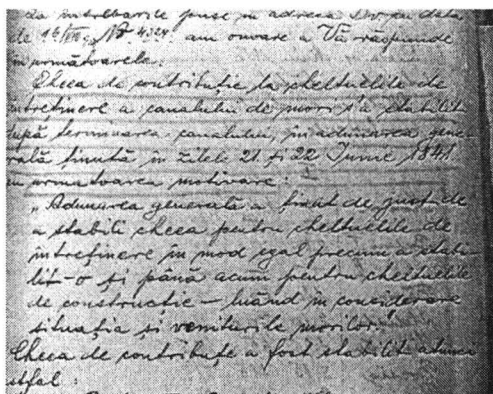 La întrebările puse în adresa Dv cu data
de 16/VIII No 4324. am onoare a Vă răspunde
în următoarele:
Cheea de contribuție la cheltuelile de
întreținere a canalului de mori s'a stabilit
după terminarea canalului, în adunarea gene-
rală ținută în zilele 21 și 22 Iunie 1841
cu următoarea motivare:
"Adunarea generală a ținut de just de
a stabili cheea pentru cheltuelile de
întreținere în mod egal precum a stabi-
lit-o și până acum pentru cheltuelile
de construcție – luând în considerare
situația și veniturile morilor."
Cheea de contribuțe a fost stabilită atunci
astfel: